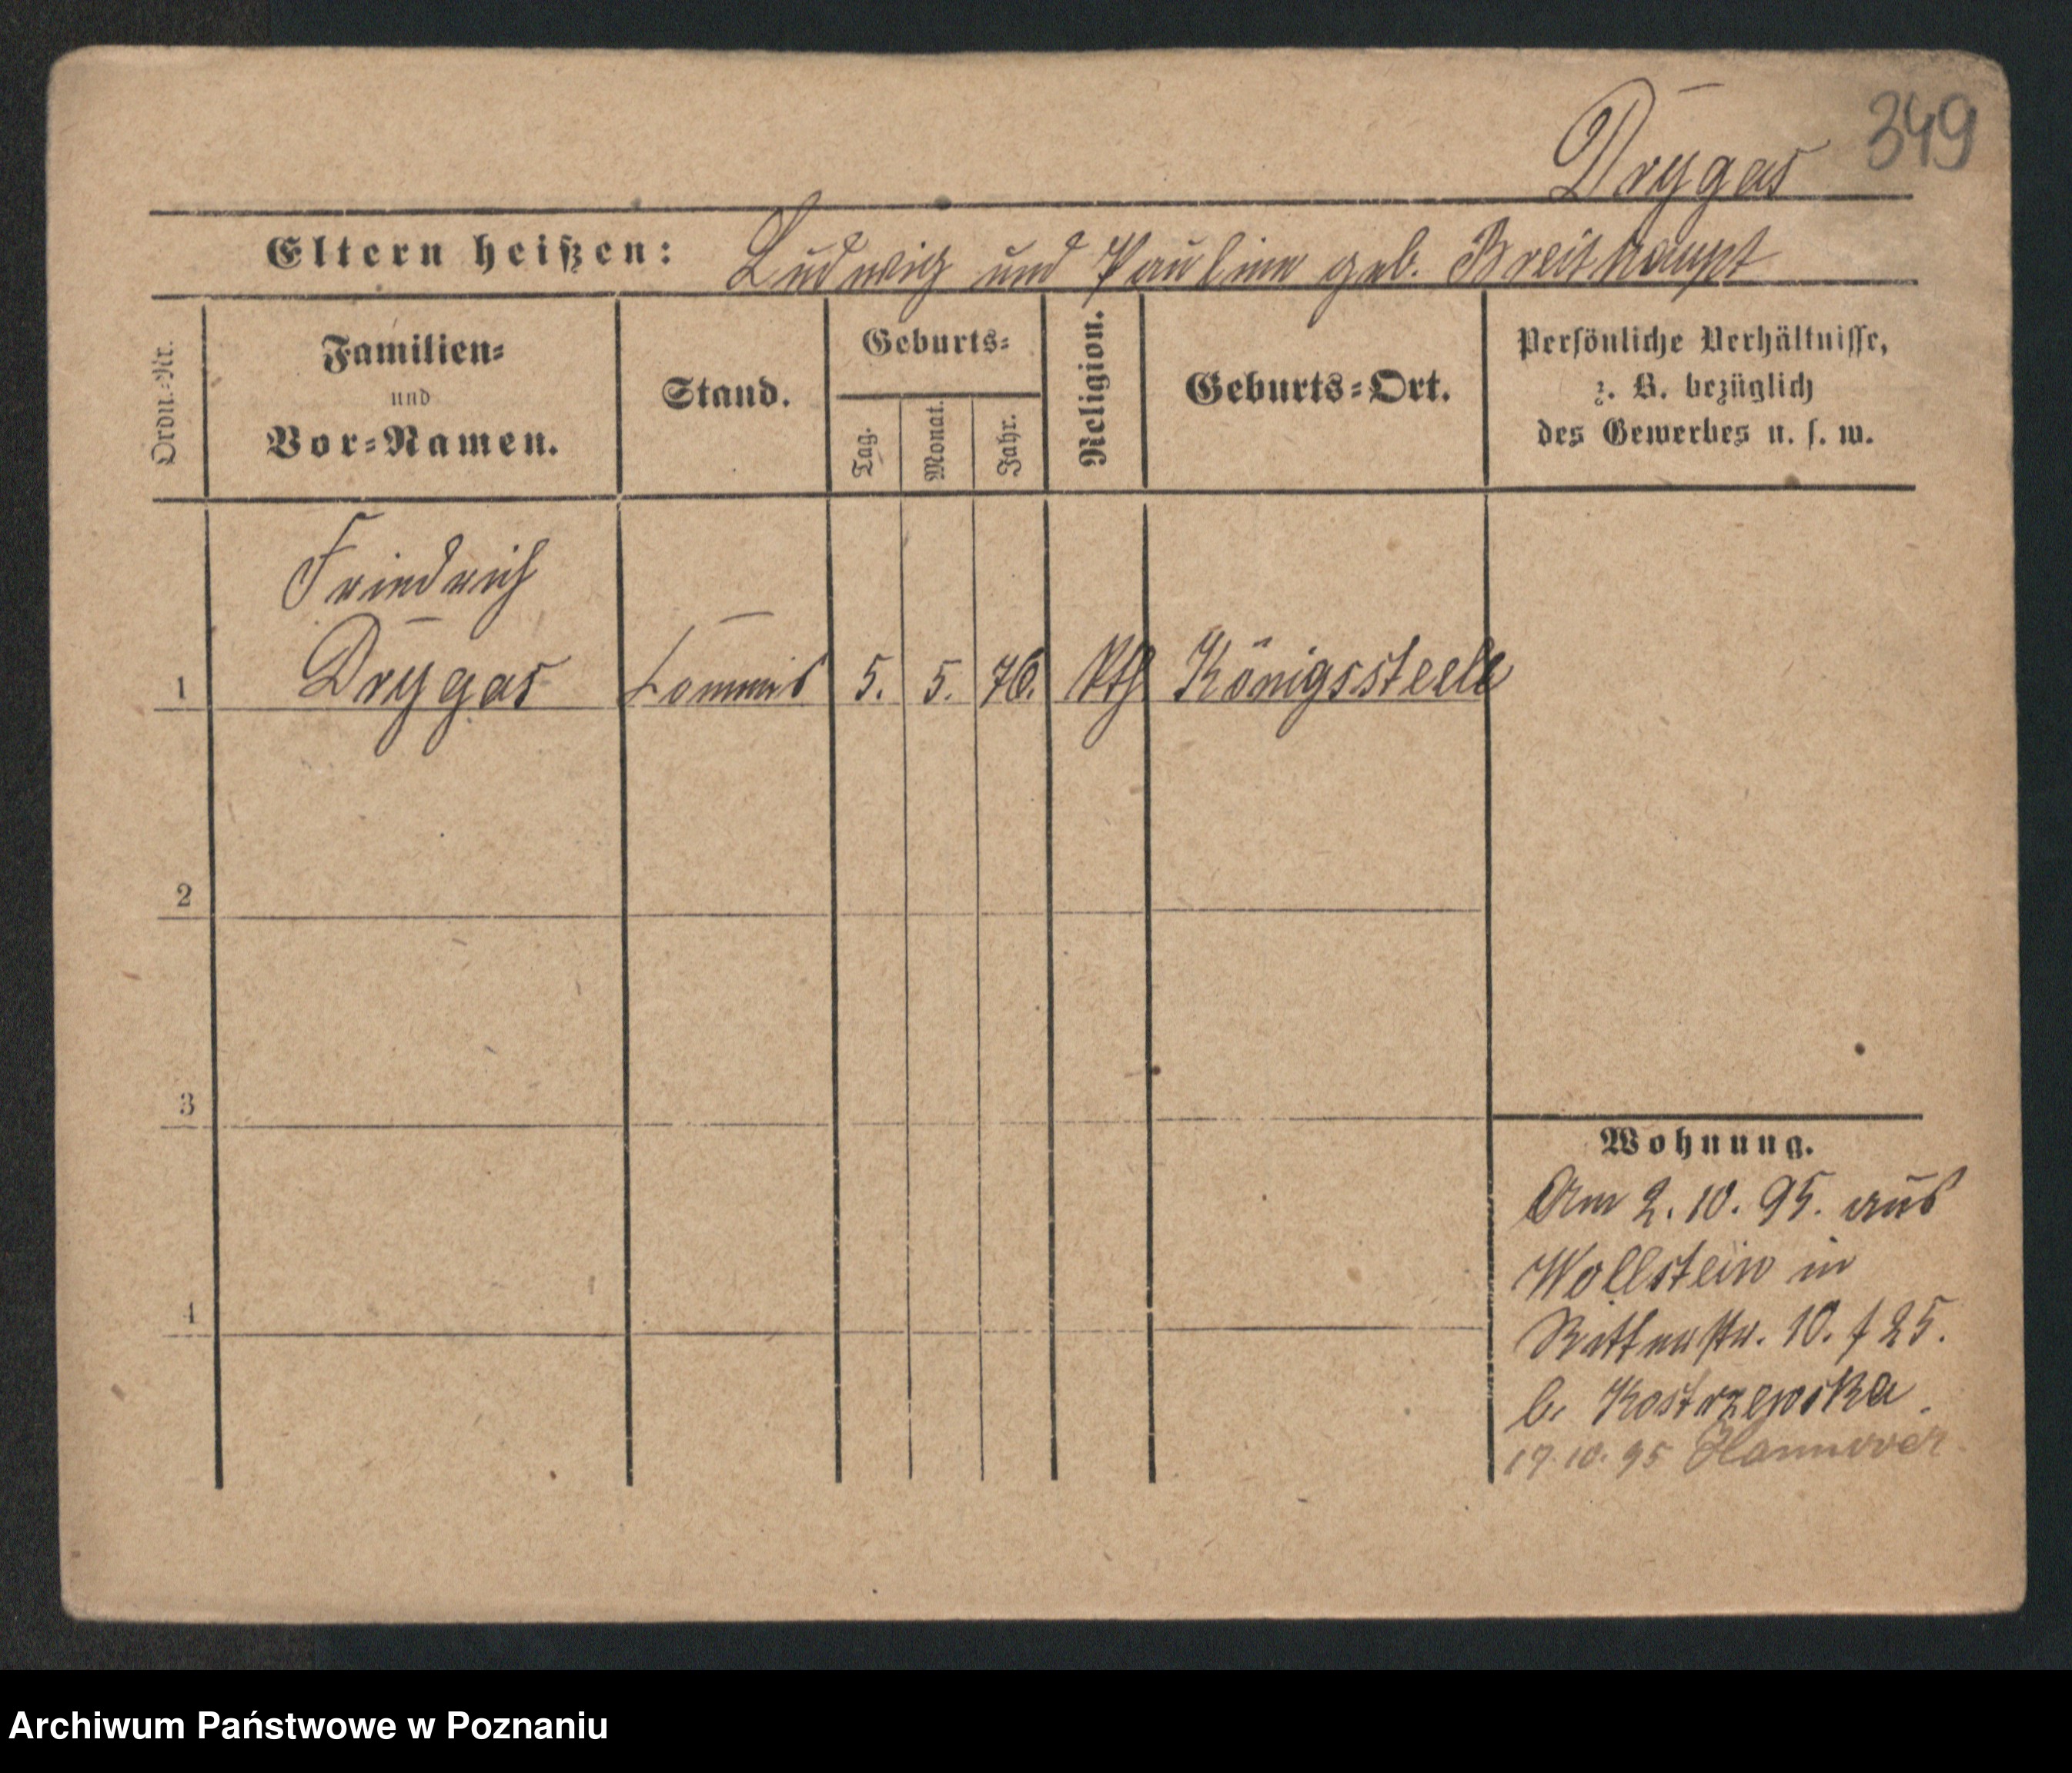 349
Drygas
Eltern heißen: Ludwig und Pauline geb. Breithaupt
Ordn.-Nr.
Familien-
und
Vor-Namen.
Stand.
Geburts-
Tag.
Monat.
Jahr.
Religion.
Geburts-Ort.
Persönliche Verhältnisse,
z. B. bezüglich
des Gewerbes u. s. w.
Friedrich
1 Drygas Commis 5. 5. 76. Kth Königsstelle
2
3
4
Wohnung.
Am 2.10.95. aus
Wollstein in
Ritterstr. 10. f 25.
b. Kostrzewska
17.10.95 Hannover
Archiwum Państwowe w Poznaniu